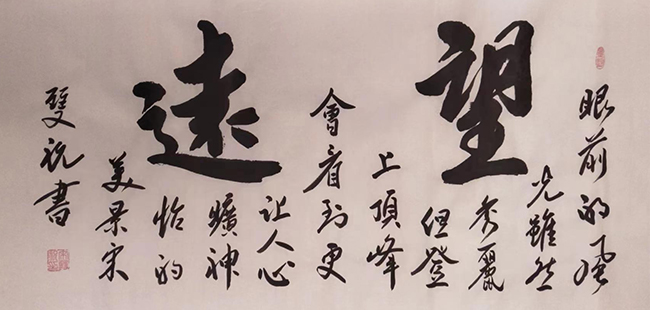 望遠
眼前的風
光雖然
秀麗
但登
上頂峰
會看到更
让人心
曠神
怡的
美景宋
雙祝書